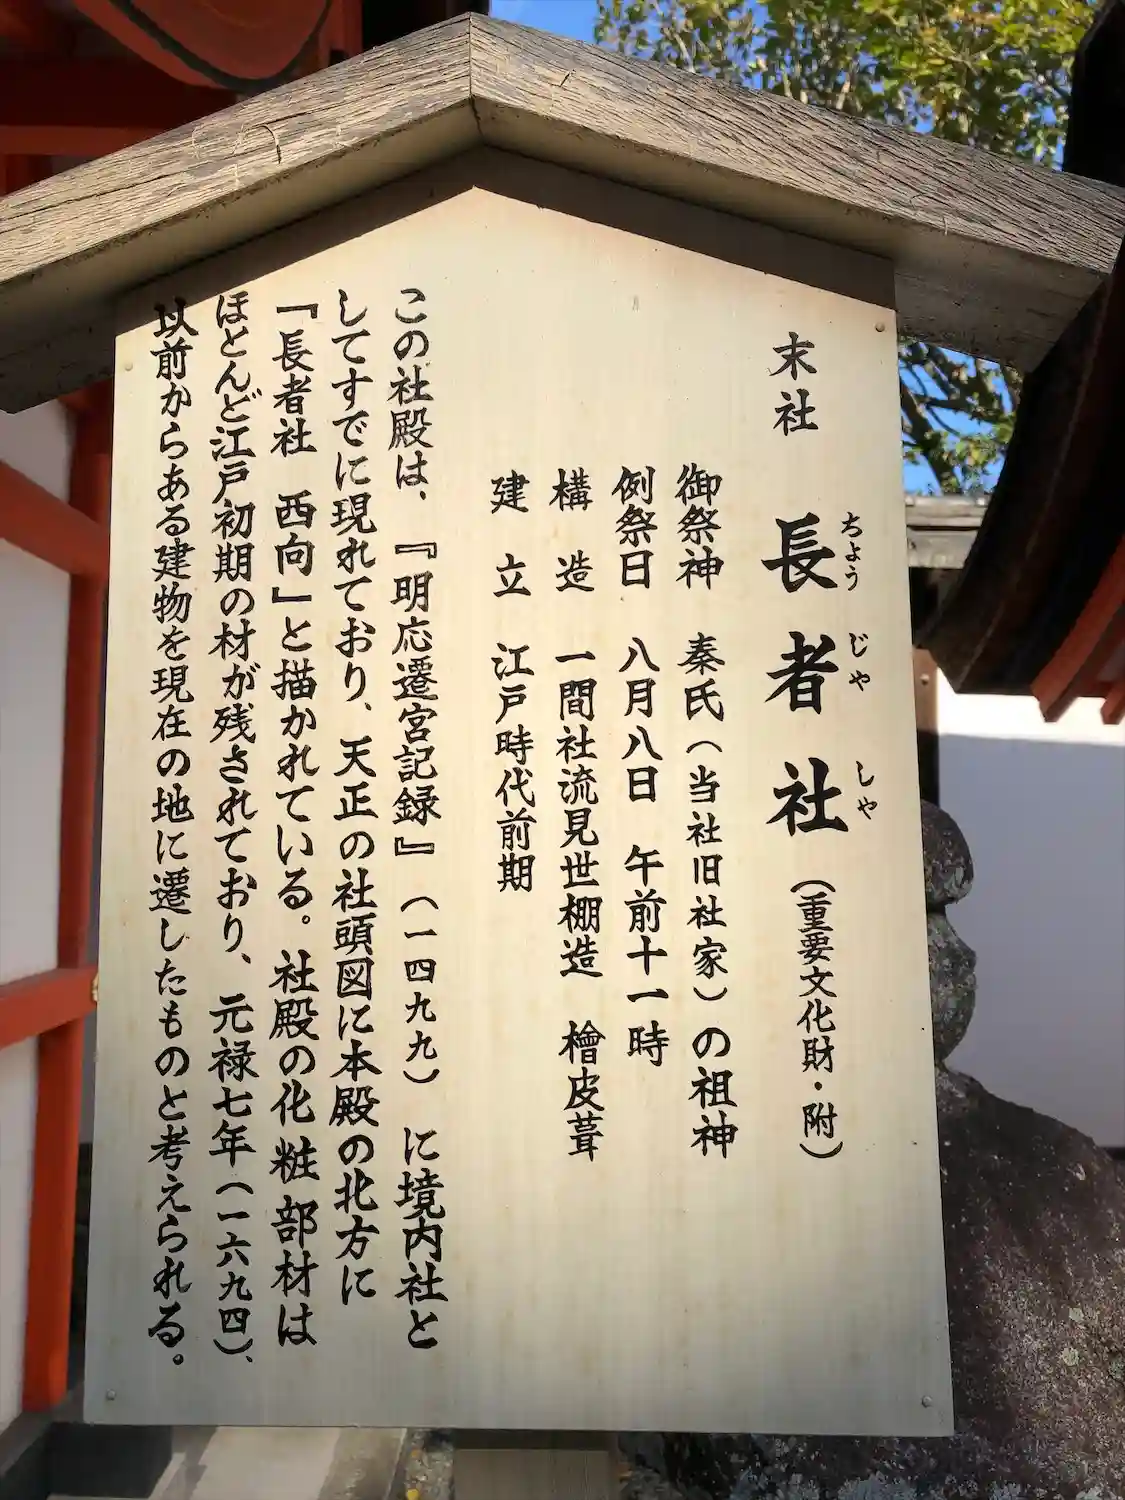 末社 長者社（重要文化財・附）
ちょう じゃ しゃ
御祭神 秦氏（当社旧社家）の祖神
例祭日 八月八日 午前十一時
構造 一間社流見世棚造 檜皮葺
建立 江戸時代前期
この社殿は、『明応遷宮記録』（一四九九）に境内社と
してすでに現れており、天正の社頭図に本殿の北方に
『長者社 西向』と描かれている。社殿の化粧部材は
ほとんど江戸初期の材が残されており、元禄七年（一六九四）、
以前からある建物を現在の地に遷したものと考えられる。